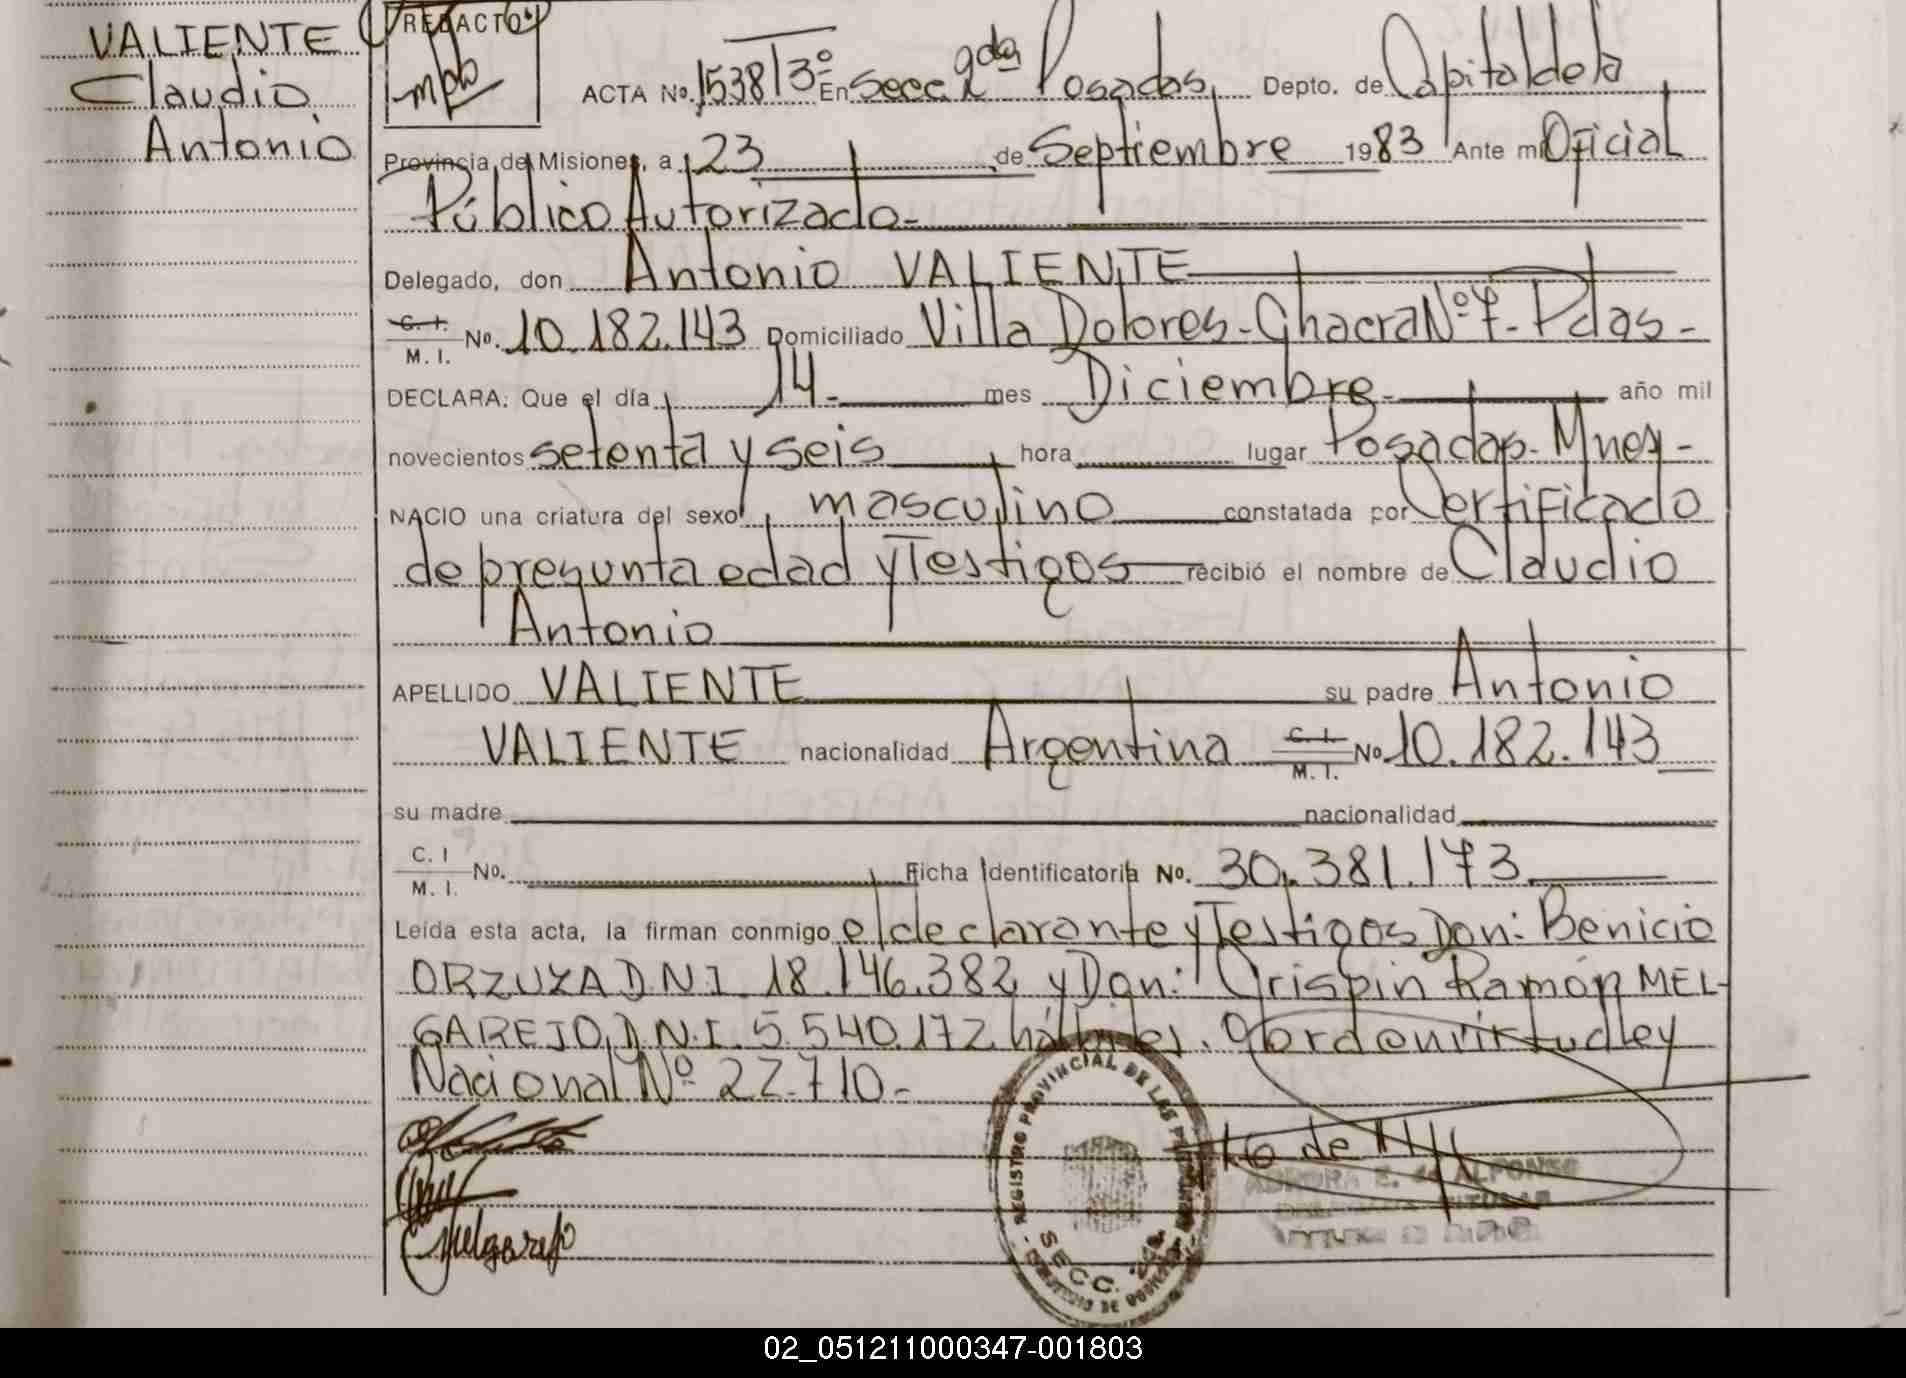 VALIENTE
Claudio
Antonio
REDACTO
ACTA No. 1538/3º En Secc. 2da Posadas, Depto. de Capital de la
Provincia de Misiones, a 23 de Septiembre 1983 Ante mi Oficial
Público Autorizado.-
Delegado, don Antonio VALIENTE
C. I. M. I. No. 10.182.143 Domiciliado Villa Dolores - Chacra Nº 7 - Pdas -
DECLARA: Que el día 14.- mes Diciembre.- año mil
novecientos setenta y seis hora lugar Posadas. Mnes -
NACIO una criatura del sexo masculino constatada por Certificado
de presunta edad y Testigos recibió el nombre de Claudio
Antonio
APELLIDO VALIENTE su padre Antonio
VALIENTE nacionalidad Argentina C. I. M. I. No 10.182.143
su madre nacionalidad
C. I M. I. No. Ficha Identificatoria No. 30.381.173
Leída esta acta, la firman conmigo el declarante y Testigos Don: Benicio
ORZUZA D.N.I. 18.146.382 y Don: Crispin Ramón MEL-
GAREJO, D.N.I. 5.540.172 hábiles. en virtud ley
Nacional Nº 22.710.-
REGISTRO PROVINCIAL DE LAS PERSONAS
SECC. 2da
E. de ALFONSO
TITULAR
Melgarejo
02_051211000347-001803